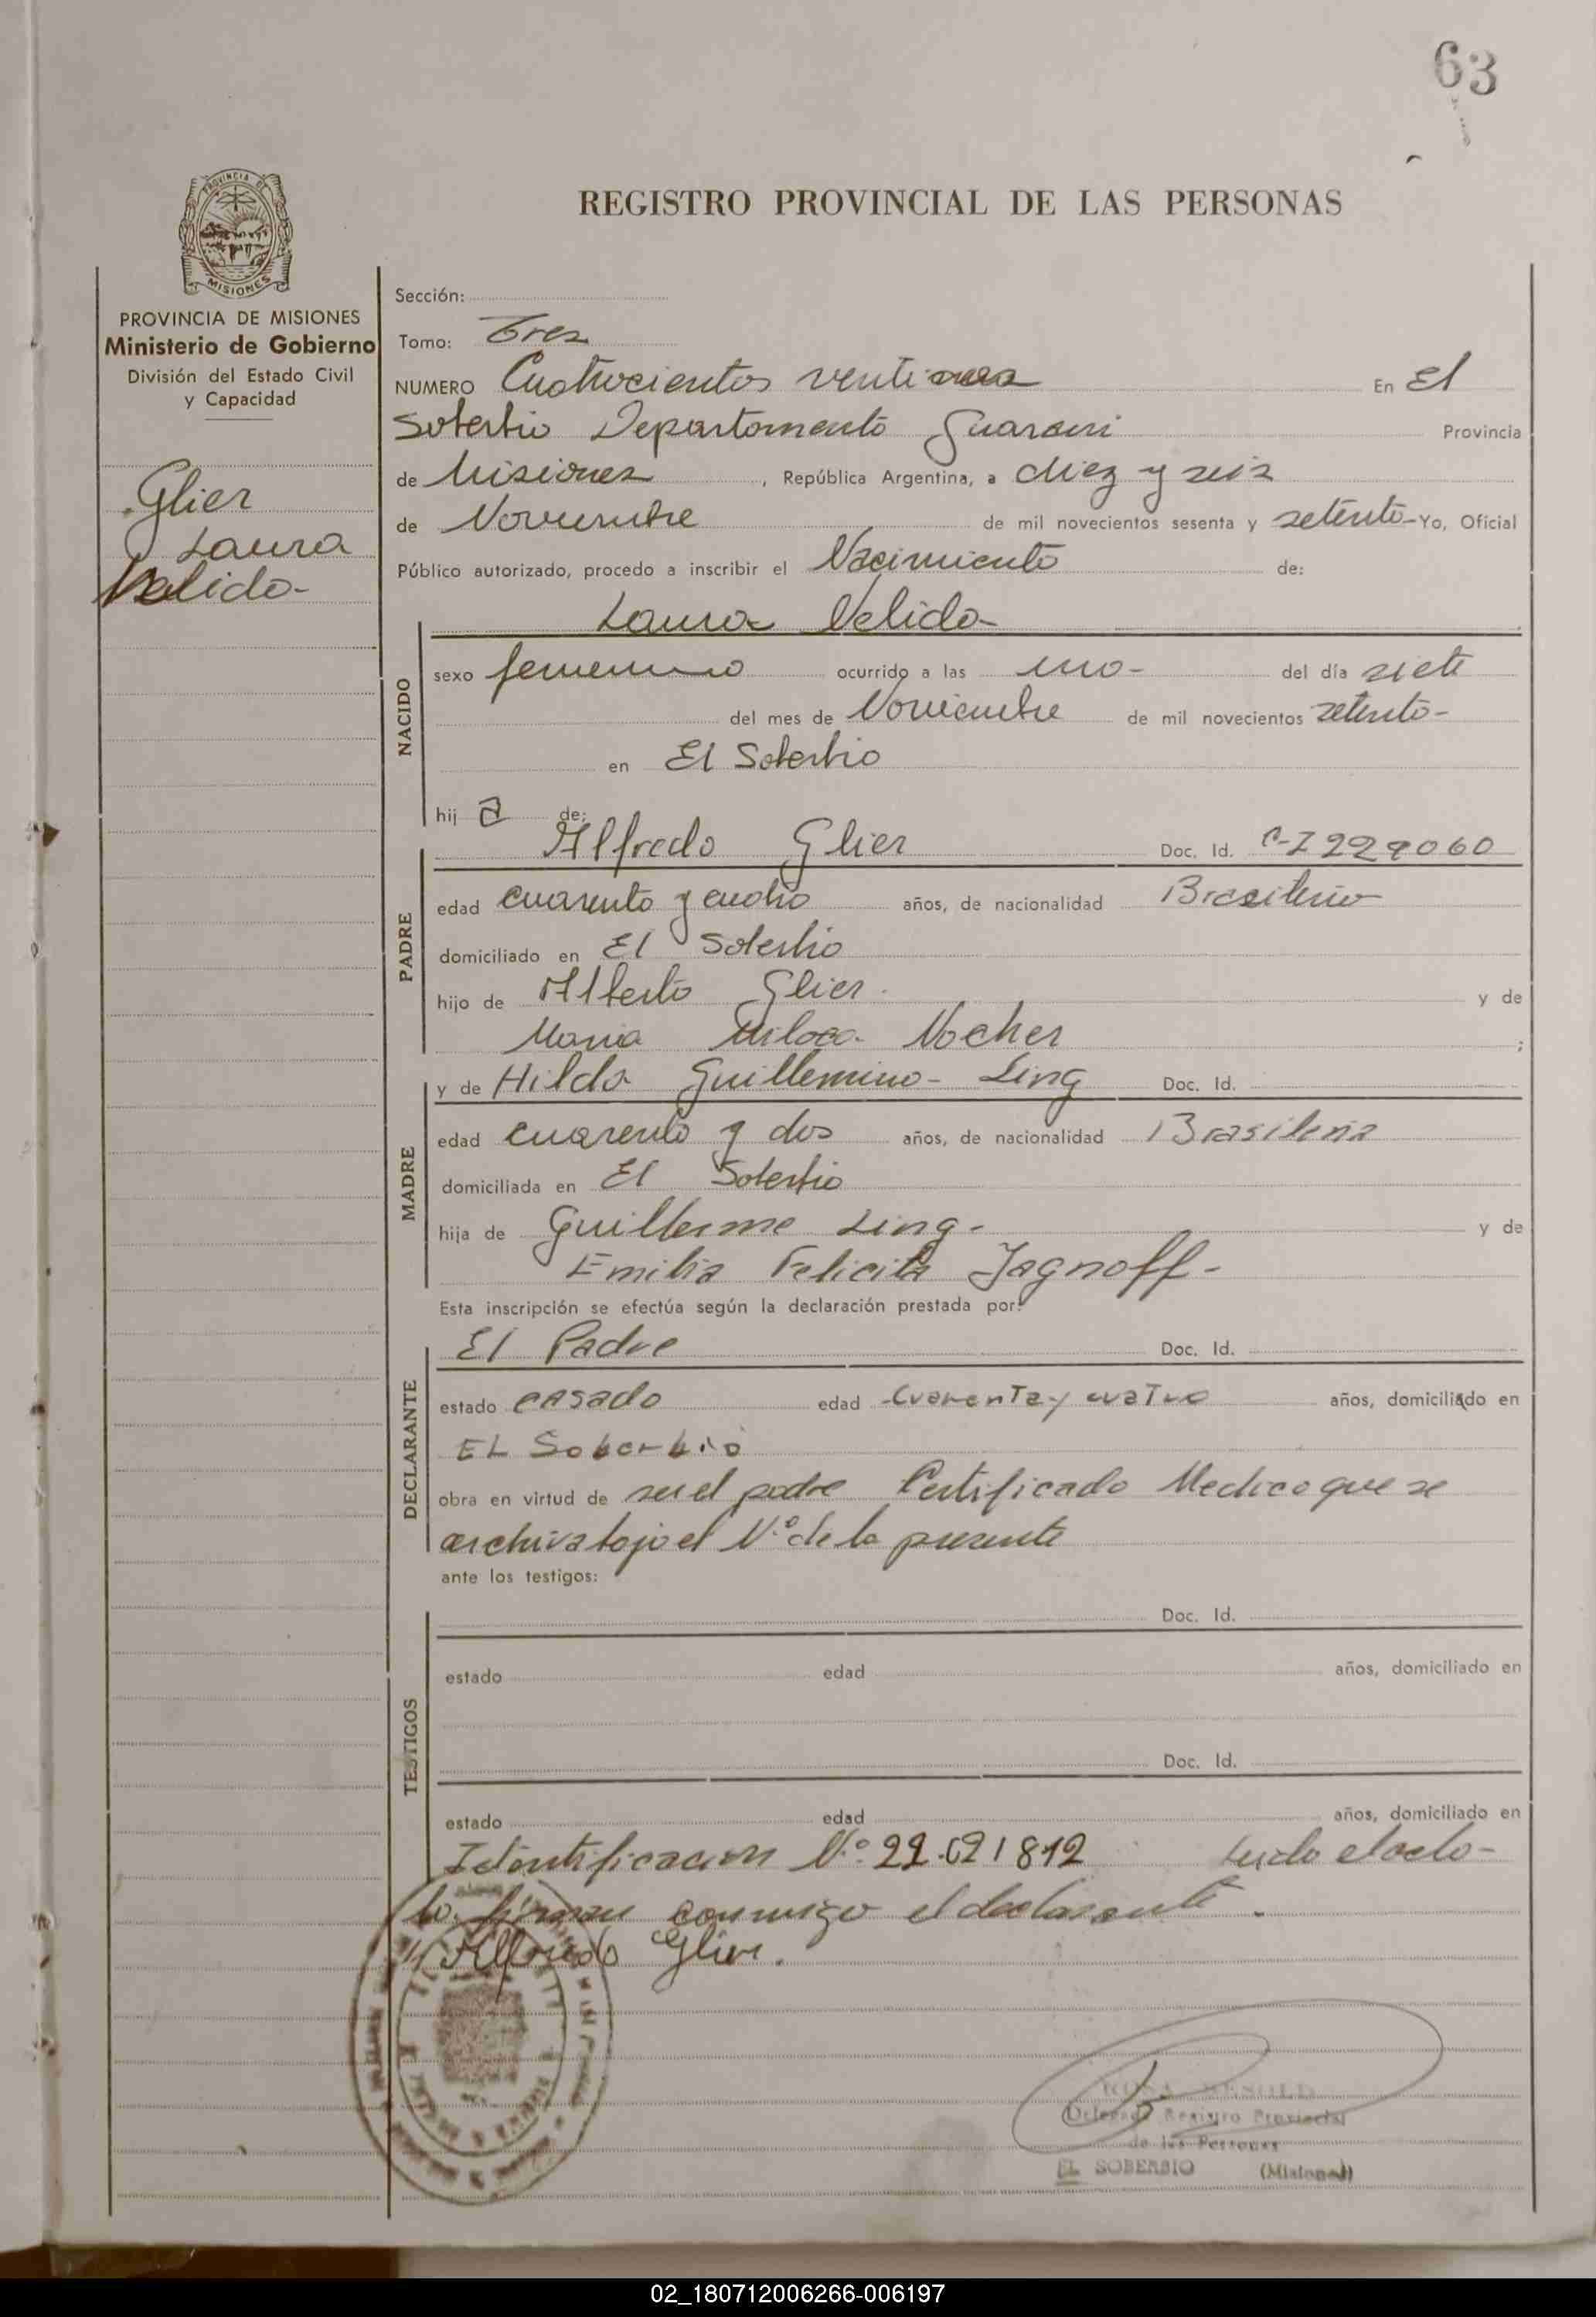 63
REGISTRO PROVINCIAL DE LAS PERSONAS
PROVINCIA DE
MISIONES
PROVINCIA DE MISIONES
Ministerio de Gobierno
División del Estado Civil
y Capacidad
Glier
Laura
Nelida-
Sección:
Tomo: Tres
NUMERO Cuatrocientos venti En El
Soberbio Departamento Guarani Provincia
de Misiones, República Argentina, a diez y seis
de Noviembre de mil novecientos sesenta y setenta- Yo, Oficial
Público autorizado, procedo a inscribir el Nacimiento de:
Laura Nelida-
NACIDO
sexo femenino ocurrido a las uno- del día siete
del mes de Noviembre de mil novecientos setenta-
en El Soberbio
hij a de:
PADRE
Alfredo Glier Doc. Id.
edad cuarenta y cuatro años, de nacionalidad Brasileño
domiciliado en El Soberbio
hijo de Alberto Glier. y de
Maria Nocher ;
MADRE
y de Hilda Guillermina- Ling Doc. Id.
edad cuarenta y dos años, de nacionalidad Brasileña
domiciliada en El Soberbio
hija de Guillerme Ling- y de
Emilia Felicita Jagnoff-
Esta inscripción se efectúa según la declaración prestada por:
DECLARANTE
El Padre Doc. Id.
estado casado edad cuarenta y cuatro años, domiciliado en
EL Soberbio
obra en virtud de ser el padre Certificado Medico que se
archiva bajo el N.º de la presente
ante los testigos:
TESTIGOS
Doc. Id.
estado edad años, domiciliado en
Doc. Id.
estado edad años, domiciliado en
Identificacion N.º Leido el acto-
lo firman conmigo el declarante.
Alfredo Glier.
Registro Provincial
de las Personas
EL SOBERBIO (Misiones)
02_180712006266-006197